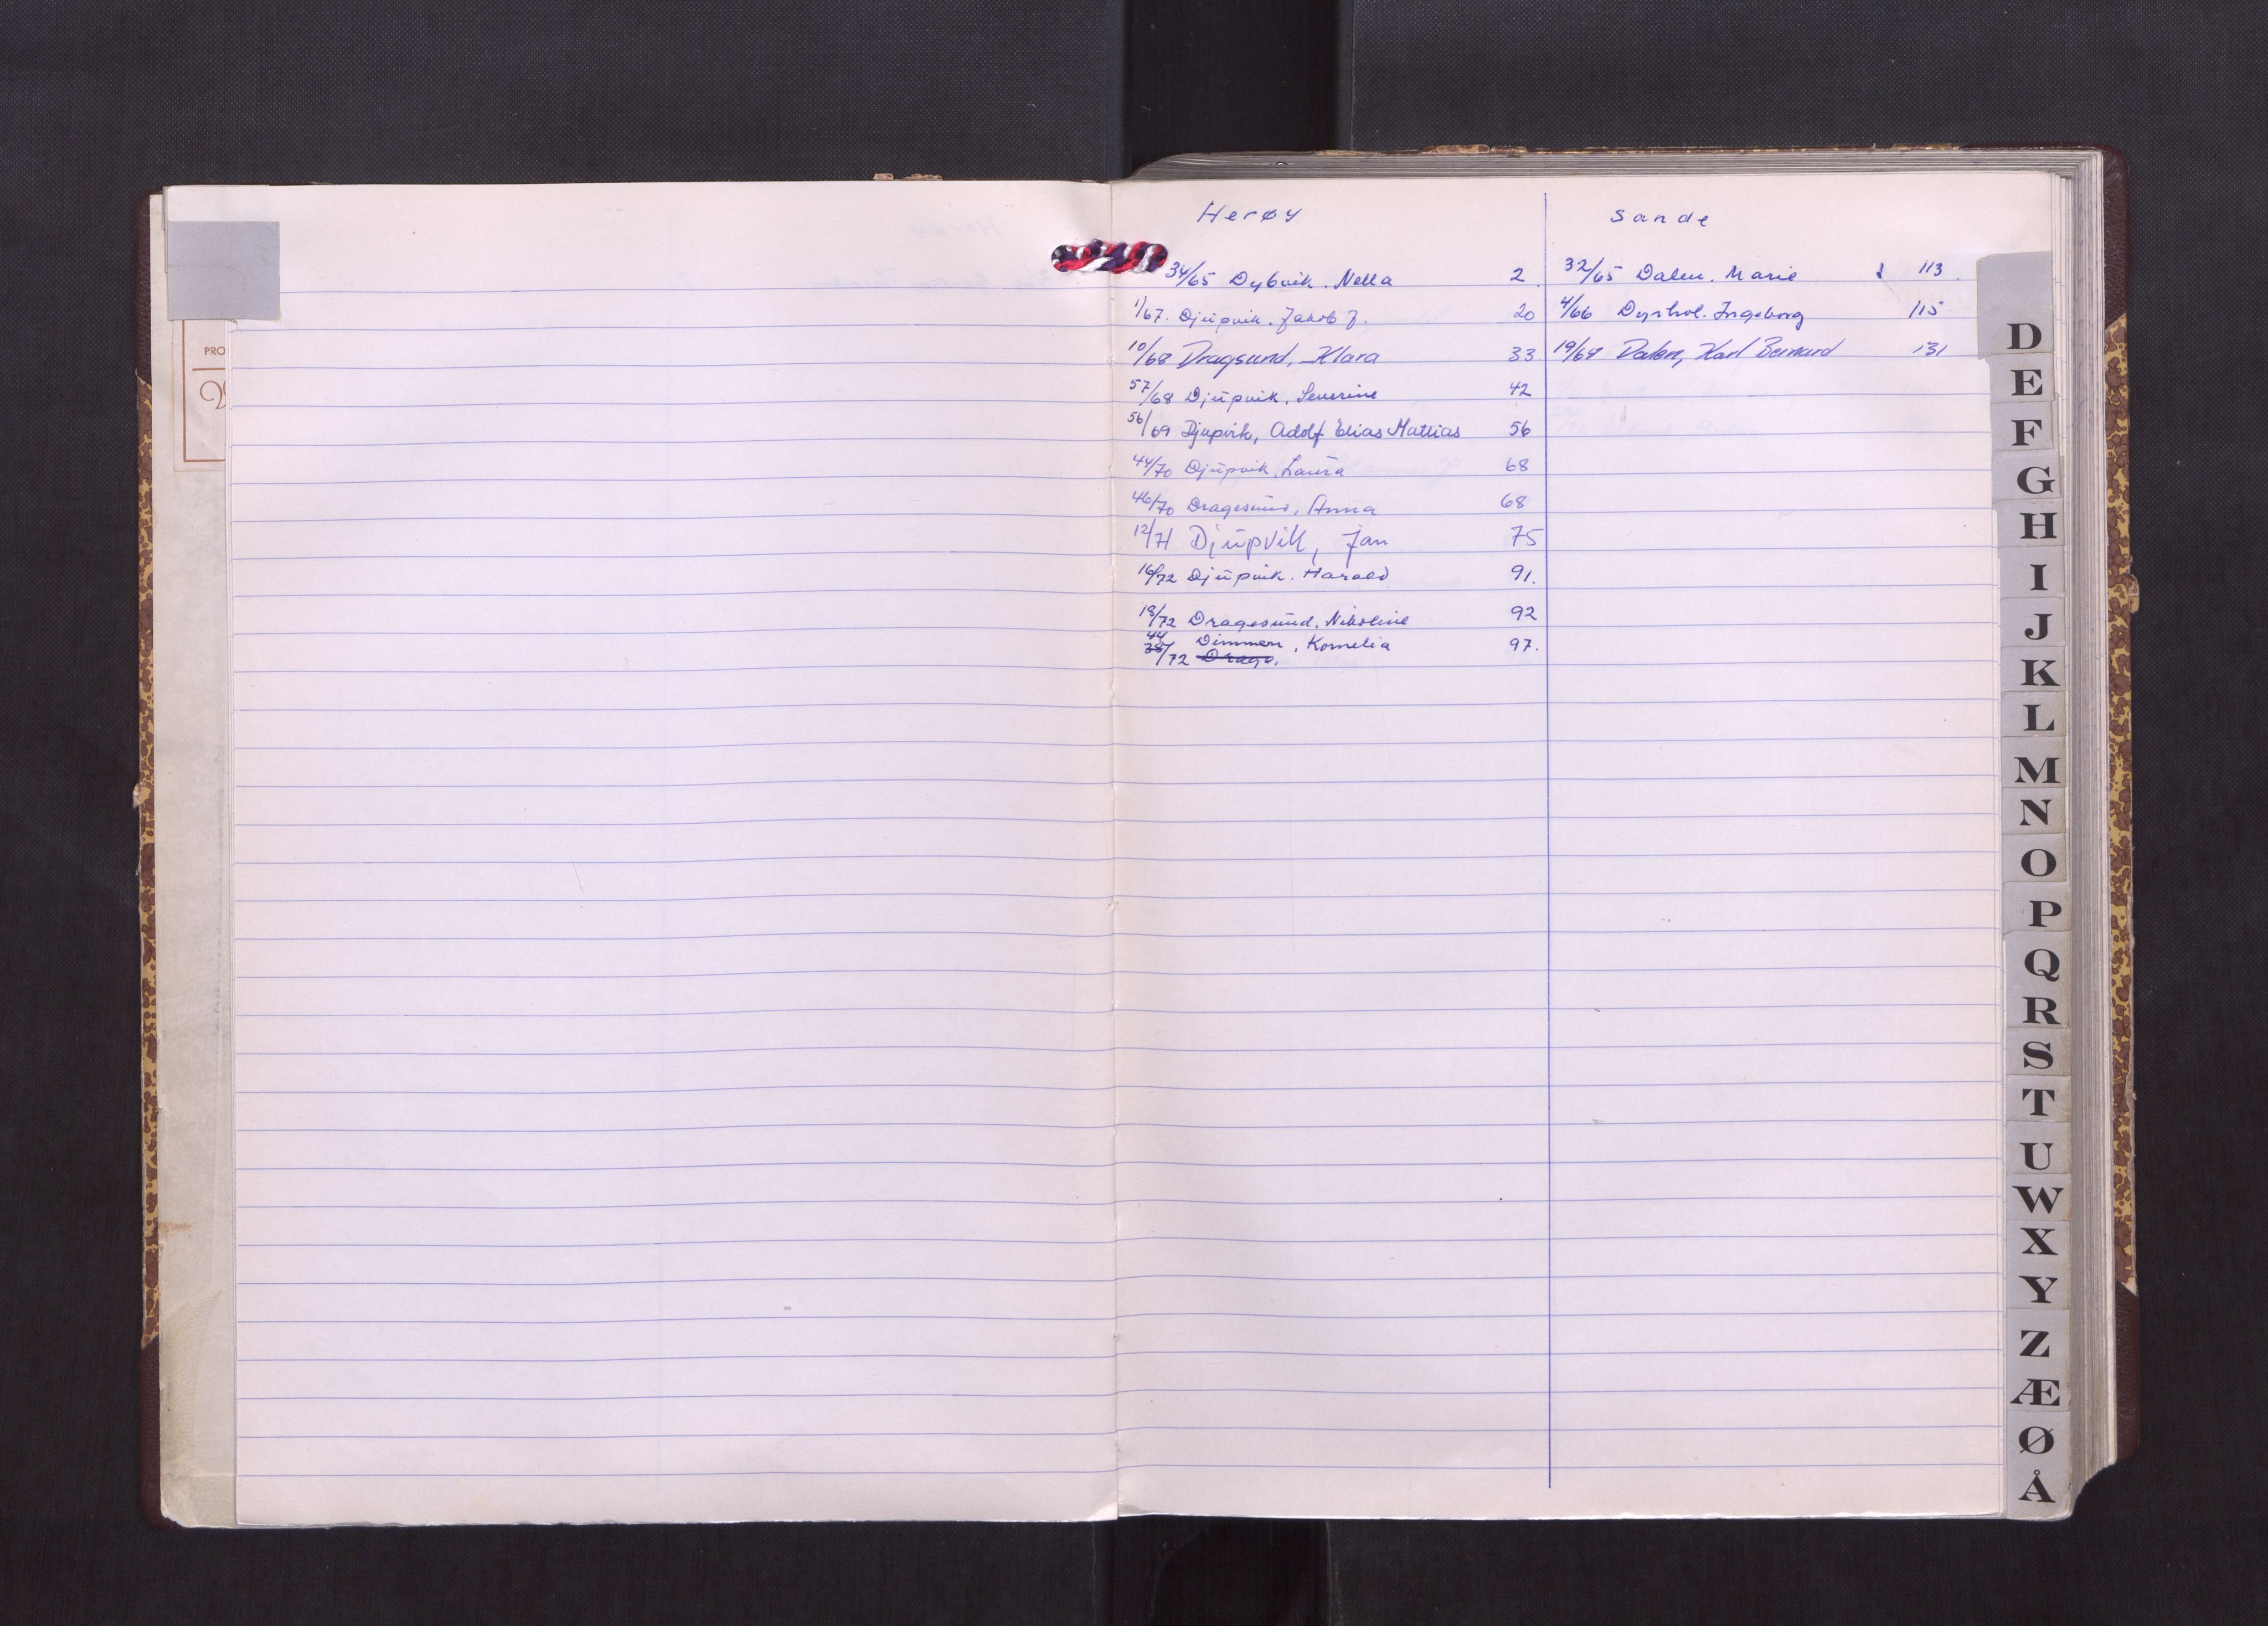 PRO
Herøy
34/65 Dybvik. Nella 2
1/67. Djupvik. Jakob J. 20
10/68 Dragsund, Klara 33
57/68 Djupvik, Severine 42
56/69 Djupvik, Adolf Elias Mattias 56
44/70 Djupvik, Laura 68
46/70 Dragesund, Anna 68
12/71 Djupvik, Jan 75
16/72 Djupvik. Harald 91.
18/72 Dragesund, Nikoline 92
44 Dimmen, Kornelia 97.
38/72 Drage,
Sande
32/65 Dalen. Marie 113.
4/66 Dyrhol. Ingeborg 115
19/69 Dalen, Karl Bernard 131
D
E
F
G
H
I
J
K
L
M
N
O
P
Q
R
S
T
U
W
X
Y
Z
Æ
Ø
Å